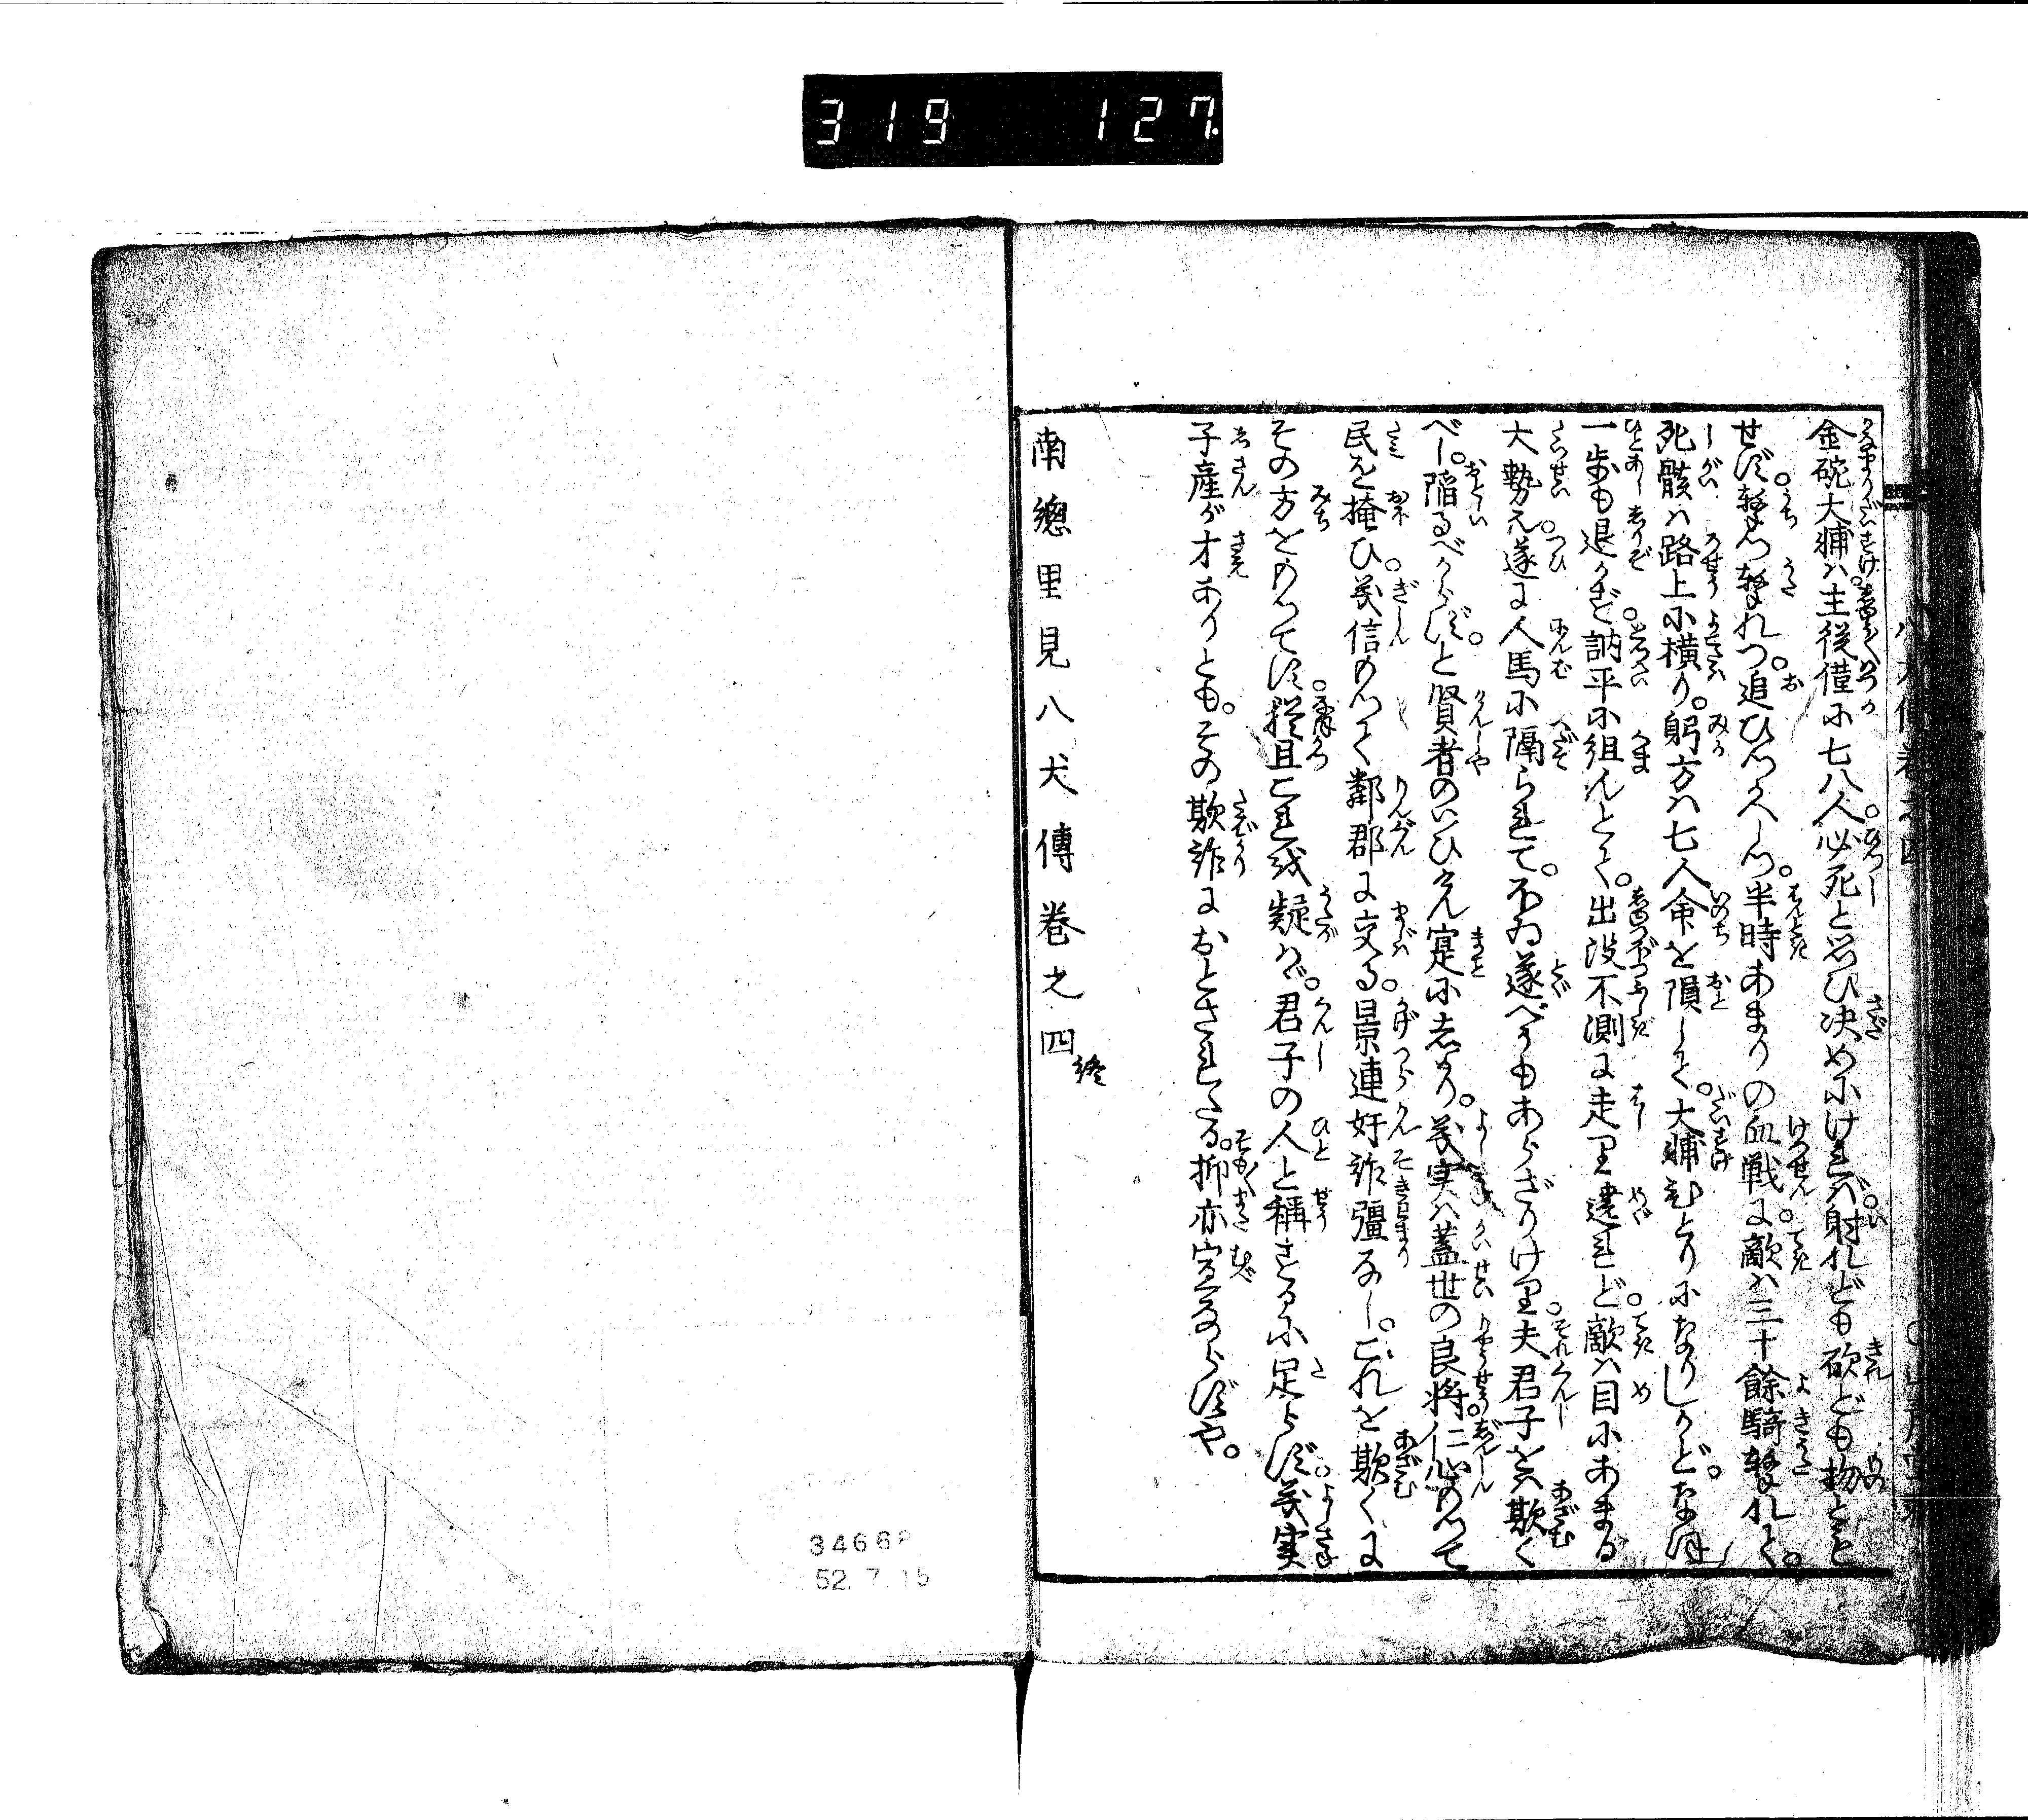 319 127.
金碗大輔ハ主従僅に七八人必死と思ひ决めにけれバ。射れども砍ども物とも
せず。撃つ撃れつ。追ひつかへしつ。半時あまりの血戦に。敵ハ三十餘騎撃れて。
死骸ハ路上に横り。躬方ハ七人命を隕して。大輔ひとりになりしかど。なほ
一歩も退かず。訥平に組んとて。出没不測に走り遶れど。敵ハ目にあまる
大勢也。遂に人馬に隔られて。本意遂べうもあらざりけり。夫君子をバ欺く
べし。陥るべからず。と賢者のいひけん寔に志かり。義実ハ蓋世の良将仁心もつて
民を掩ひ。義信もつて鄰郡に交る。景連奸詐彊なし。これを欺くに
その方をもつてす。縦且これを疑ハゞ。君子の人と稱するに足らず。義実
子産が才ありとも。その欺詐におとされたる。抑亦宜ならずや。
南總里見八犬傳卷之四終
3466
52. 7. 15